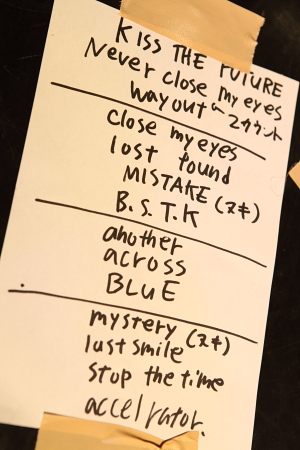 KISS THE FUTURE
Never close my eyes
way out ~ 2カウント
close my eyes
lost found
MISTAKE (ヌキ)
B.S.T.K
another
across
BLUE
mystery (ヌキ)
last smile
stop the time
accelrator.